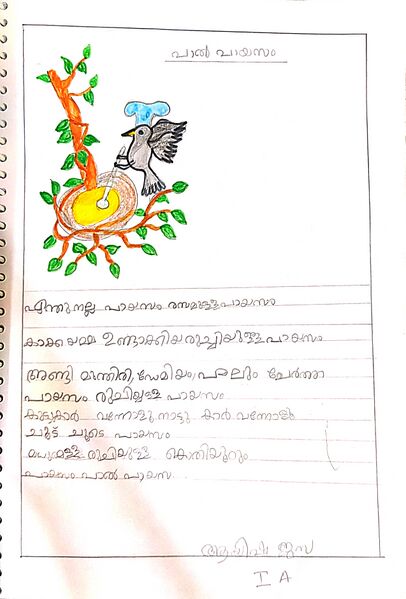 പാൽ പായസം
എന്തു നല്ല പായസം രസമുള്ള പായസം
കാക്കയമ്മ ഉണ്ടാക്കിയ രുച്ചിയുള്ള പായസം
അണ്ടി മുന്തിരി, സേമിയം, പാലും ചേർത്ത
പായസം രുചിയുള്ള പായസം
കൂട്ടുകാർ വന്നോളൂ നാട്ടുകാർ വന്നോളൂ
ചൂട് ചൂടെ പായസം
മധുമുള്ള രുചിയുള്ള കൊതിയൂറും
പായസം പാൽ പായസ
I A